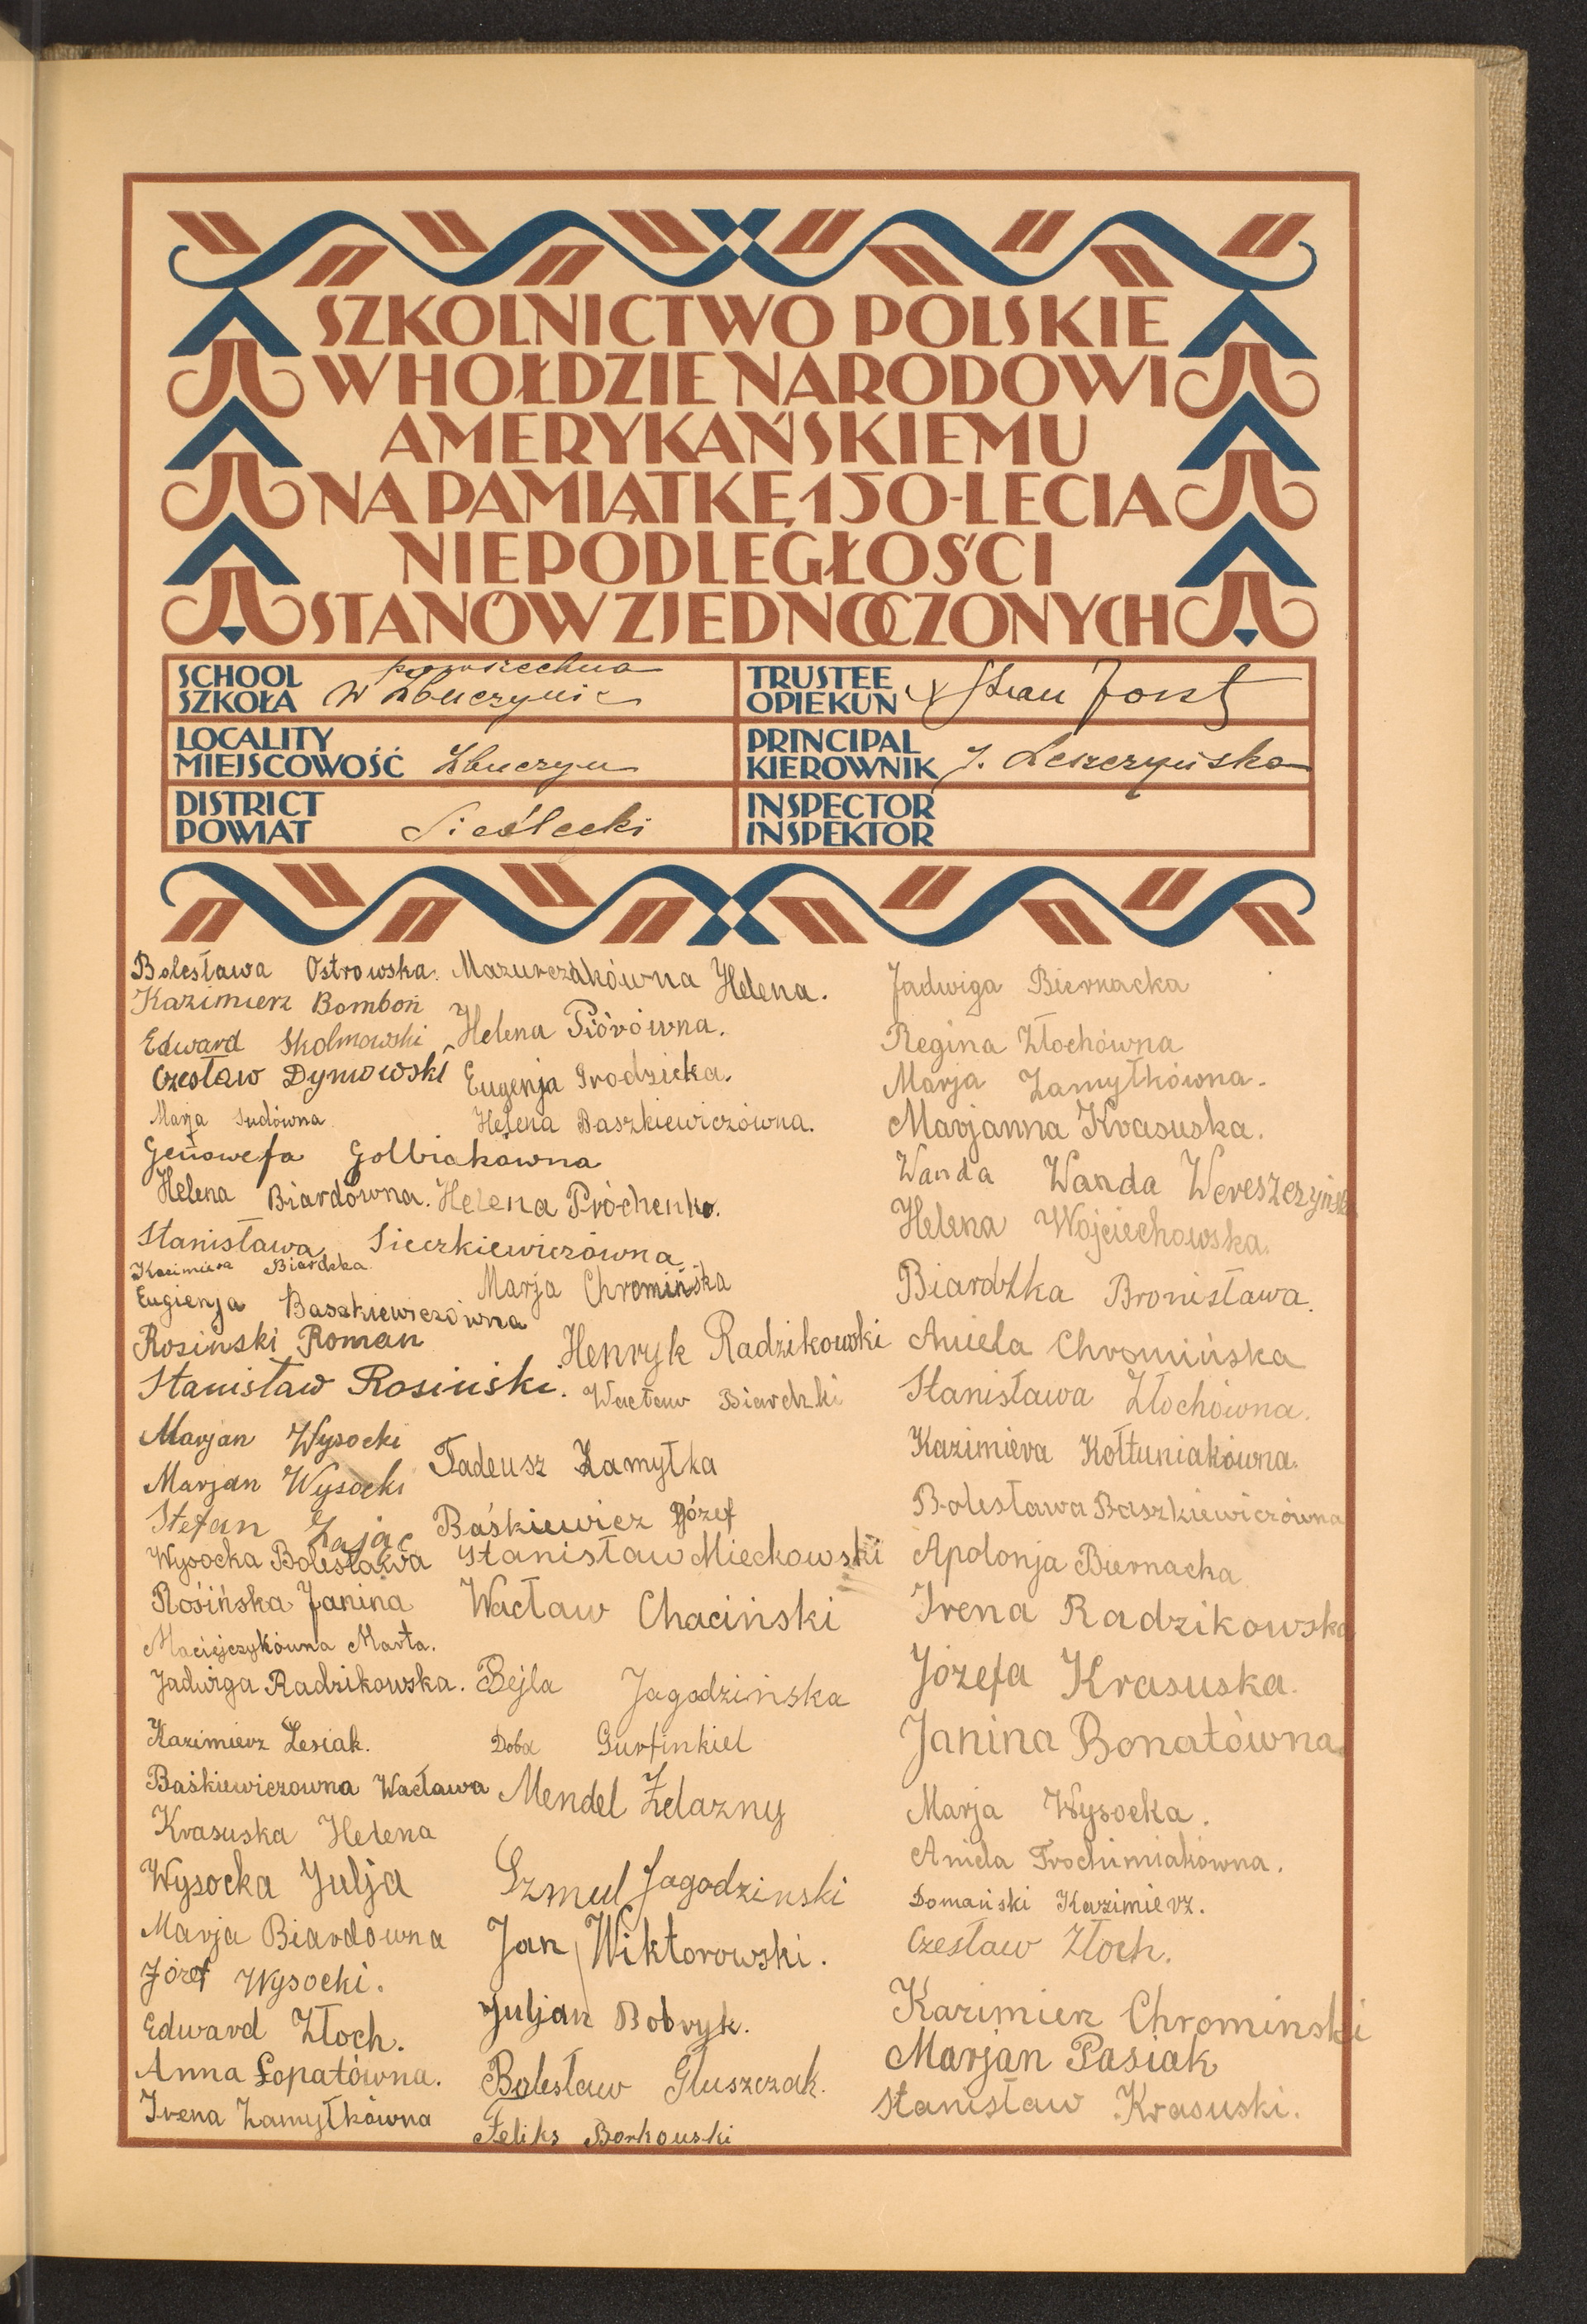 SZKOLNICTWO POLSKIE
W HOŁDZIE NARODOWI
AMERYKAŃSKIEMU
NA PAMIĄTKĘ 150-LECIA
NIEPODLEGŁOŚCI
STANÓW ZJEDNOCZONYCH
SCHOOL
SZKOŁA
powszechna
w Zbuczynie
TRUSTEE
OPIEKUN
LOCALITY
MIEJSCOWOŚĆ
Zbuczyn
PRINCIPAL
KIEROWNIK
J. Leszczyńska
DISTRICT
POWIAT
Siedlecki
INSPECTOR
INSPEKTOR
Bolesława Ostrowska.
Kazimierz Bomboń
Edward Skolmowski
Czesław Dymowski
Marja Sudówna
Genowefa Golbiakówna
Helena Biardówna.
Stanisława Sieczkiewiczówna
Kazimiera Biardzka
Eugienja Baszkiewiczówna
Rosiński Roman
Stanisław Rosiński.
Marjan Wysocki
Marjan Wysocki
Stefan Zając
Wysocka Bolesława
Rośińska Janina
Maciejczykówna Marta.
Jadwiga Radzikowska.
Kazimierz Lesiak.
Baśkiewiczowna Wacława
Krasuska Helena
Wysocka Julja
Marja Biardówna
Józef Wysocki.
Edward Złoch.
Anna Łopatówna.
Irena Zamyłkówna
Mazurczakówna Helena.
Helena Piórówna.
Eugenja Grodzicka.
Helena Baszkiewiczówna.
Helena Próchenko.
Marja Chromińska
Henryk Radzikowski
Wacław Biardzki
Tadeusz Zamyłka
Baśkiewicz Józef
Stanisław Mieckowski
Wacław Chaciński
Bejla Jagodzińska
Doba Gurfinkiel
Mendel Żelazny
Szmul Jagodzinski
Jan Wiktorowski.
Juljan Bobryk.
Bolesław Gluszczak.
Feliks Borkowski
Jadwiga Biernacka
Regina Złochówna
Marja Zamyłkówna.
Marjanna Krasuska.
Wanda Wanda Wereszczyńska
Helena Wojciechowska.
Biardzka Bronisława.
Aniela Chromińska
Stanisława Złochówna.
Kazimiera Kołtuniakówna.
Bolesława Baszkiewiczówna
Apolonja Biernacka
Irena Radzikowska
Józefa Krasuska.
Janina Bonatówna
Marja Wysocka.
Aniela Trochimiakówna.
Domański Kazimierz.
Czesław Złoch.
Kazimierz Chrominski
Marjan Pasiak
Stanisław Krasuski.